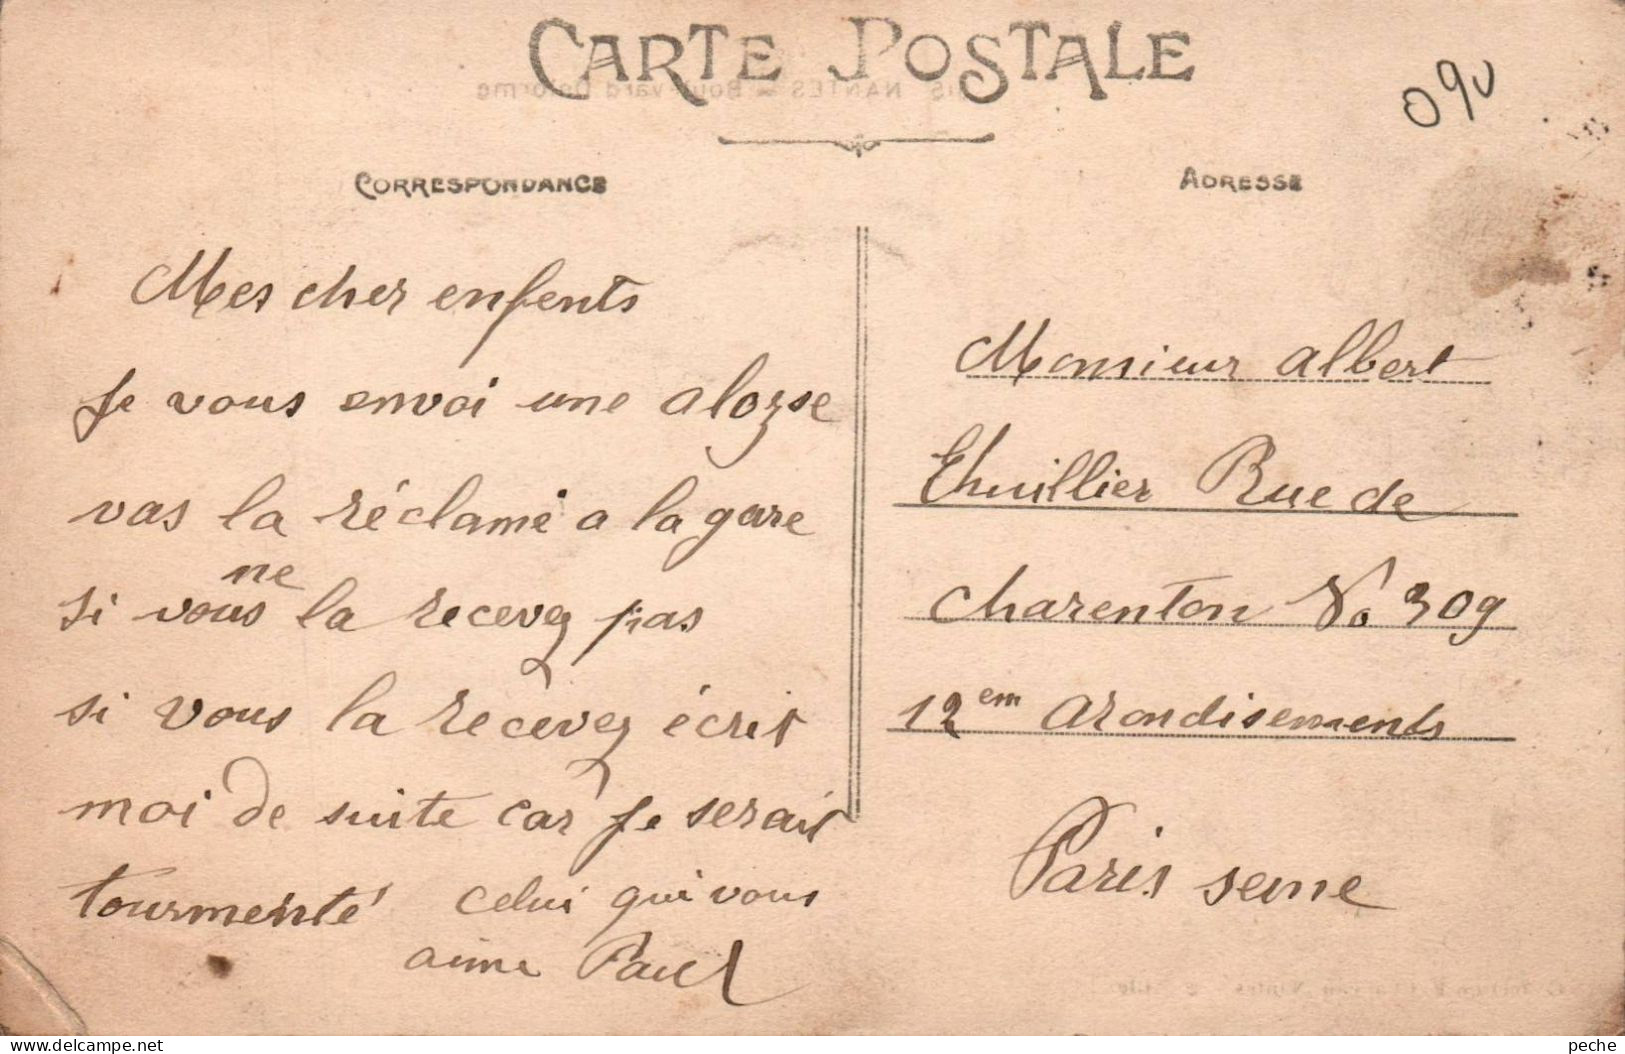 CARTE POSTALE
090
CORRESPONDANCE
ADRESSE
Mes cher enfents
Je vous envoi une alozse
vas la réclamé a la gare
si vous ne la recevez pas
si vous la recevez écrit
moi de suite car je serait
tourmenté celui qui vous
aime Paul
Monsieur Albert
Thuillier Rue de
Charenton No 309
12em Arondisements
Paris Seine
peche